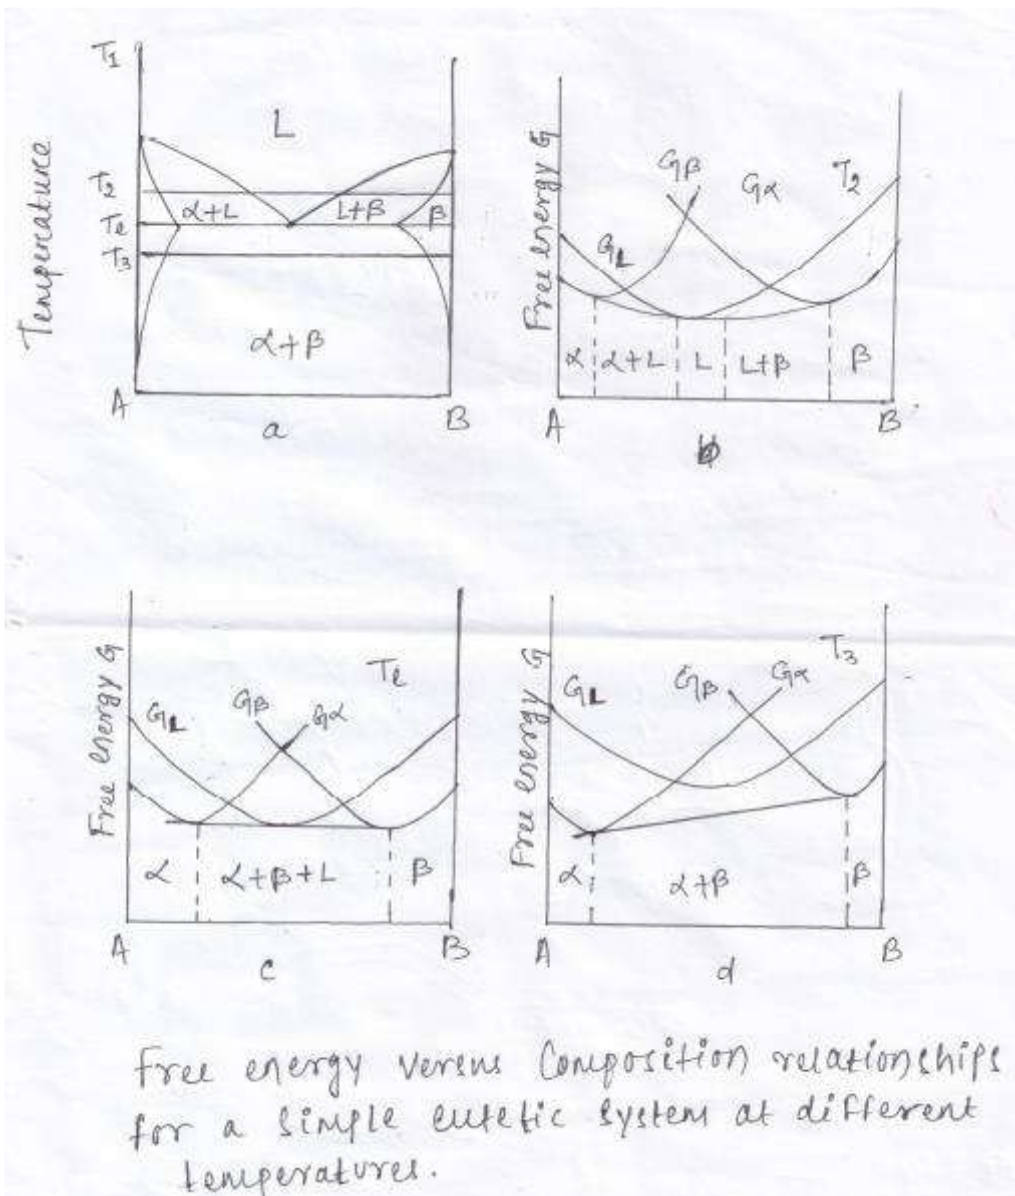 T1
Temperature
L
T2
α+L
L+β
β
Te
T3
α+β
A
B
a
Free energy G
Gβ
Gα
T2
GL
α
α+L
L
L+β
β
A
B
b
Free energy G
GL
Gβ
Gα
Te
α
α+β+L
β
A
B
c
Free energy G
GL
Gβ
Gα
T3
α
α+β
β
A
B
d
Free energy versus Composition relationships
for a simple eutetic system at different
temperatures.